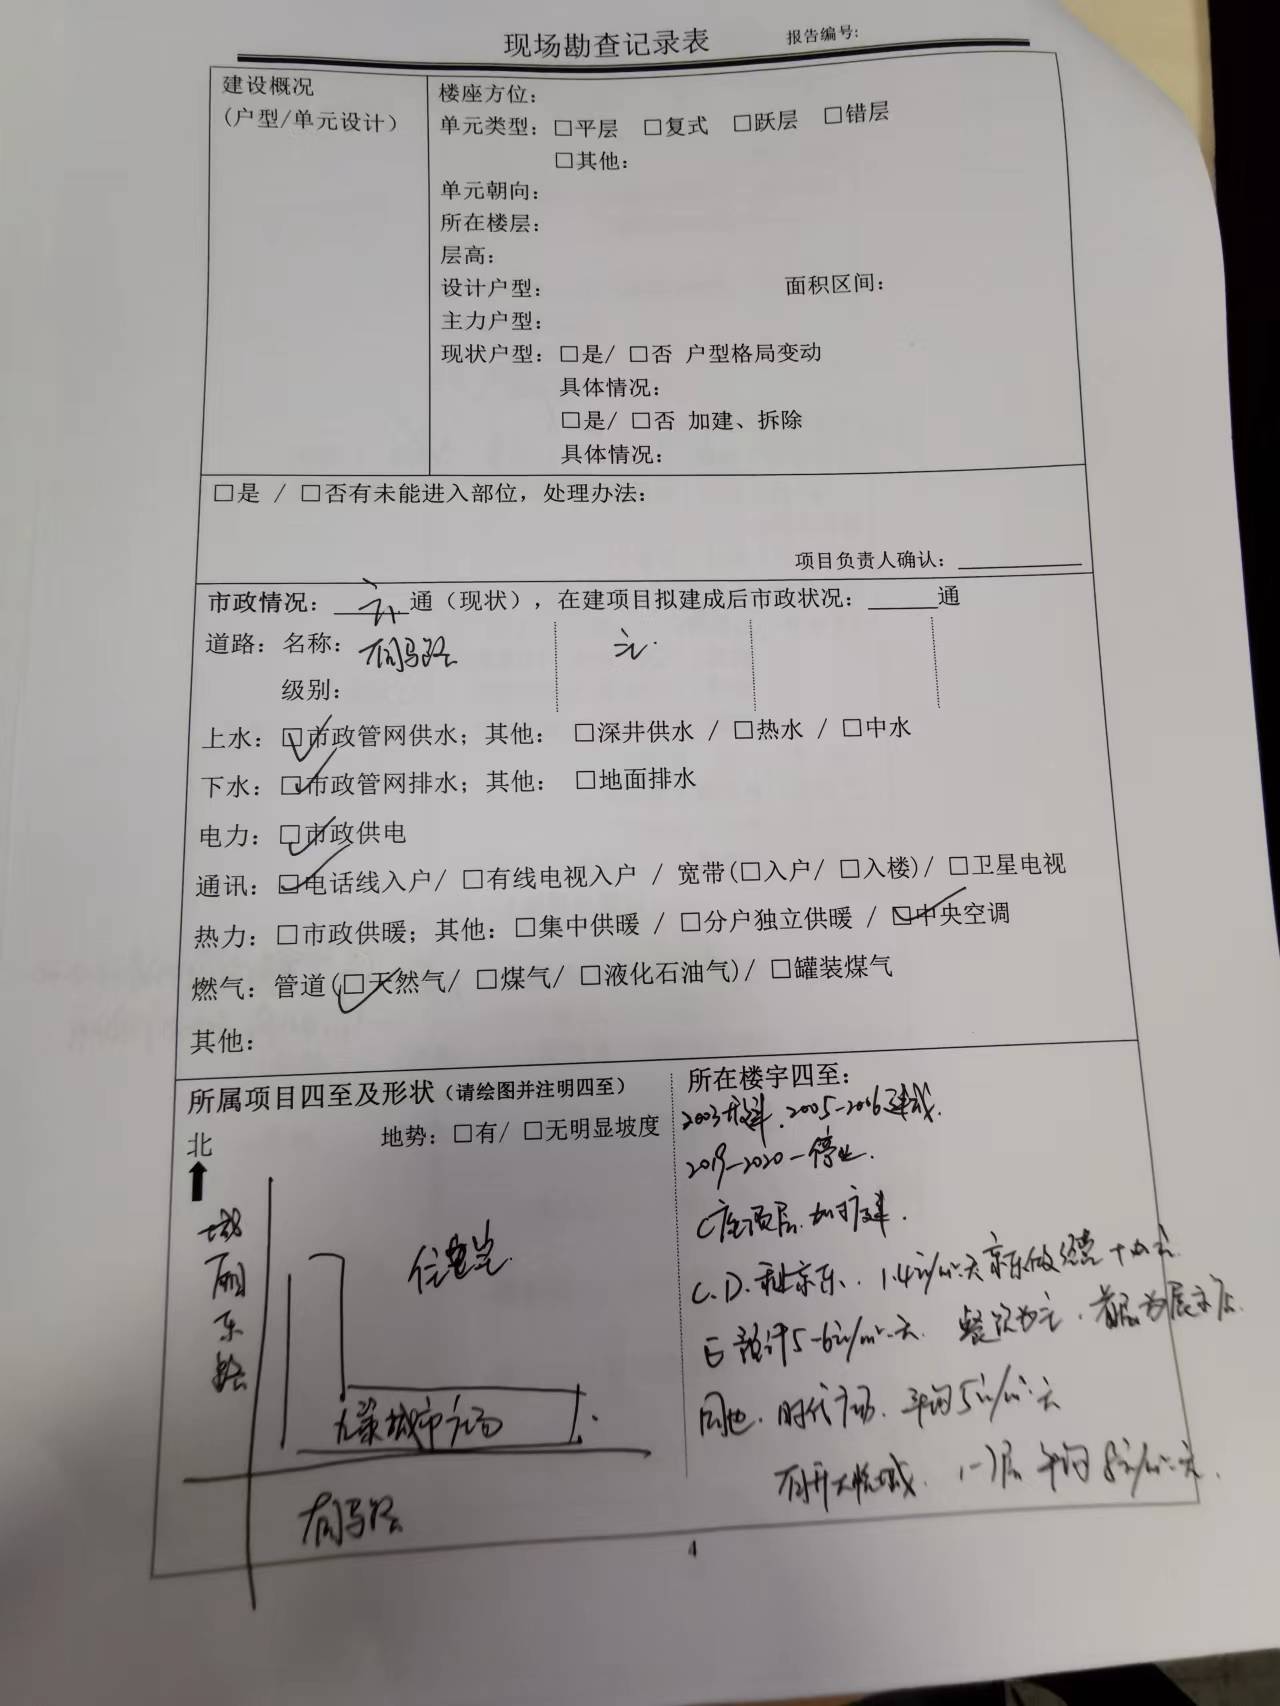 现场勘查记录表 报告编号:
建设概况
(户型/单元设计)
楼座方位:
单元类型: □平层 □复式 □跃层 □错层
□其他:
单元朝向:
所在楼层:
层高:
设计户型: 面积区间:
主力户型:
现状户型: □是/ □否 户型格局变动
具体情况:
□是/ □否 加建、拆除
具体情况:
□是 / □否有未能进入部位，处理办法:
项目负责人确认:
市政情况: 六通（现状），在建项目拟建成后市政状况: 通
道路: 名称: 有马路
级别:
上水: □市政管网供水；其他: □深井供水 / □热水 / □中水
下水: □市政管网排水；其他: □地面排水
电力: □市政供电
通讯: □电话线入户/ □有线电视入户 / 宽带(□入户/ □入楼)/ □卫星电视
热力: □市政供暖；其他: □集中供暖 / □分户独立供暖 / □中央空调
燃气: 管道(□天然气/ □煤气/ □液化石油气)/ □罐装煤气
其他:
所属项目四至及形状（请绘图并注明四至）
地势: □有/ □无明显坡度
北
城厢东路
城市广场
有马路
所在楼宇四至:
2003开建、2005-2006建成.
2019-2020一停业.
C座顶层.加扩建.
C、D. 京东. 1.4元/㎡.天 京东做
E 预计5-6元/㎡.天. 餐饮为主.
周边. 时代广场. 平均5元/㎡.天
大悦城. 平均8元/㎡.天.
4